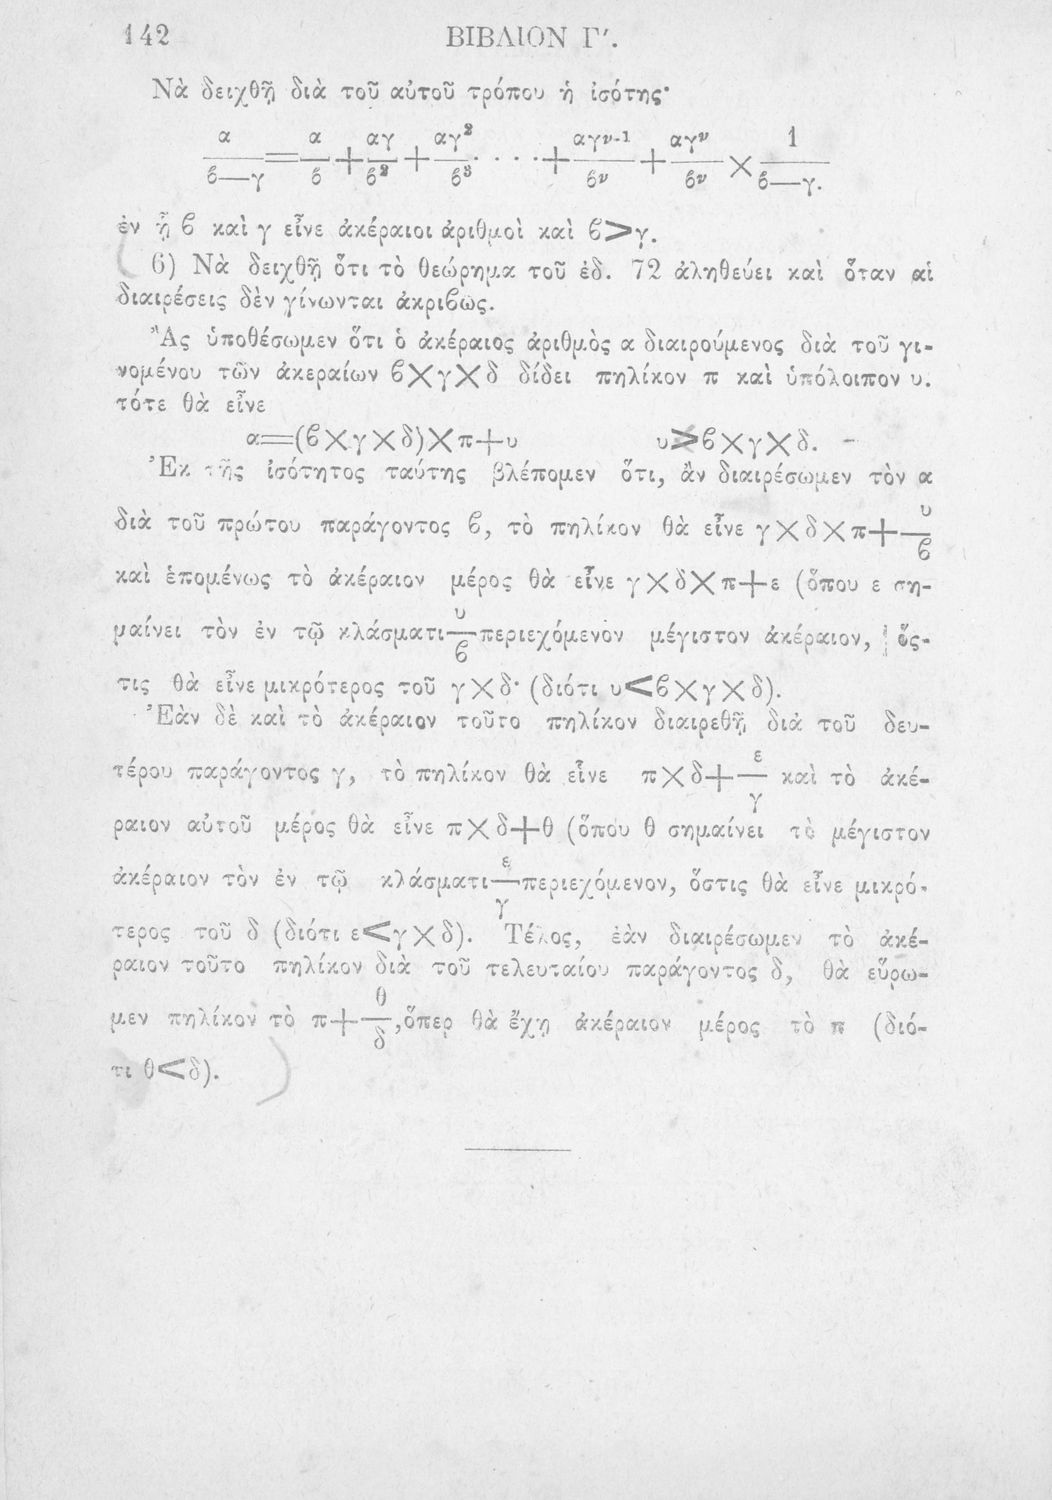 142 ΒΙΒΛΙΟΝ Γ′.
Νὰ δειχθῇ διὰ τοῦ αὐτοῦ τρόπου ἡ ἰσότης·
α/(ϐ—γ)=α/ϐ+αγ/ϐ²+αγ²/ϐ³....+αγν-1/ϐν+αγν/ϐν×1/(ϐ—γ).
ἐν ᾗ ϐ καὶ γ εἶνε ἀκέραιοι ἀριθμοὶ καὶ ϐ>γ.
6) Νὰ δειχθῇ ὅτι τὸ θεώρημα τοῦ ἐδ. 72 ἀληθεύει καὶ ὅταν αἱ
διαιρέσεις δὲν γίνωνται ἀκριϐῶς.
Ἂς ὑποθέσωμεν ὅτι ὁ ἀκέραιος ἀριθμὸς α διαιρούμενος διὰ τοῦ γι-
νομένου τῶν ἀκεραίων ϐ×γ×δ δίδει πηλίκον π καὶ ὑπόλοιπον υ.
τότε θὰ εἶνε
α=(ϐ×γ×δ)×π+υ υ>ϐ×γ×δ.
Ἐκ τῆς ἰσότητος ταύτης βλέπομεν ὅτι, ἂν διαιρέσωμεν τὸν α
διὰ τοῦ πρώτου παράγοντος ϐ, τὸ πηλίκον θὰ εἶνε γ×δ×π+υ/ϐ
καὶ ἑπομένως τὸ ἀκέραιον μέρος θὰ εἶνε γ×δ×π+ε (ὅπου ε ση-
μαίνει τὸν ἐν τῷ κλάσματι υ/ϐ περιεχόμενον μέγιστον ἀκέραιον, ὅς-
τις θὰ εἶνε μικρότερος τοῦ γ×δ· (διότι υ<ϐ×γ×δ).
Ἐὰν δὲ καὶ τὸ ἀκέραιον τοῦτο πηλίκον διαιρεθῇ διὰ τοῦ δευ-
τέρου παράγοντος γ, τὸ πηλίκον θὰ εἶνε π×δ+ε/γ καὶ τὸ ἀκέ-
ραιον αὐτοῦ μέρος θὰ εἶνε π×δ+θ (ὅπου θ σημαίνει τὸ μέγιστον
ἀκέραιον τὸν ἐν τῷ κλάσματι ε/γ περιεχόμενον, ὅστις θὰ εἶνε μικρό-
τερος τοῦ δ (διότι ε<γ×δ). Τέλος, ἐὰν διαιρέσωμεν τὸ ἀκέ-
ραιον τοῦτο πηλίκον διὰ τοῦ τελευταίου παράγοντος δ, θὰ εὕρω-
μεν πηλίκον τὸ π+θ/δ, ὅπερ θὰ ἔχῃ ἀκέραιον μέρος τὸ π (διό-
τι θ<δ).